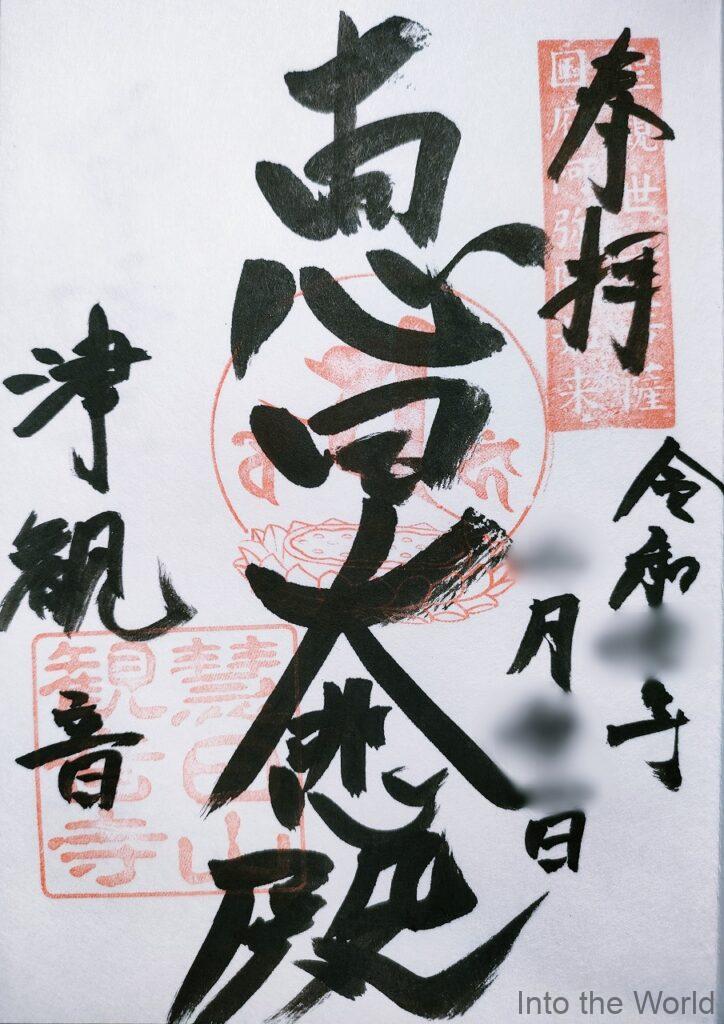 奉拝
聖観世音菩薩
国府阿弥陀如来
令和 年
月 日
恵日大悲殿
津観音
慧日山
観音寺
Into the World